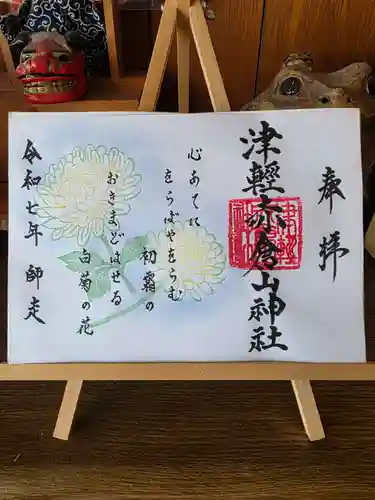 奉拝
津軽赤倉山神社
心あてに
をらばやをらむ
初霜の
おきまどはせる
白菊の花
令和七年 師走